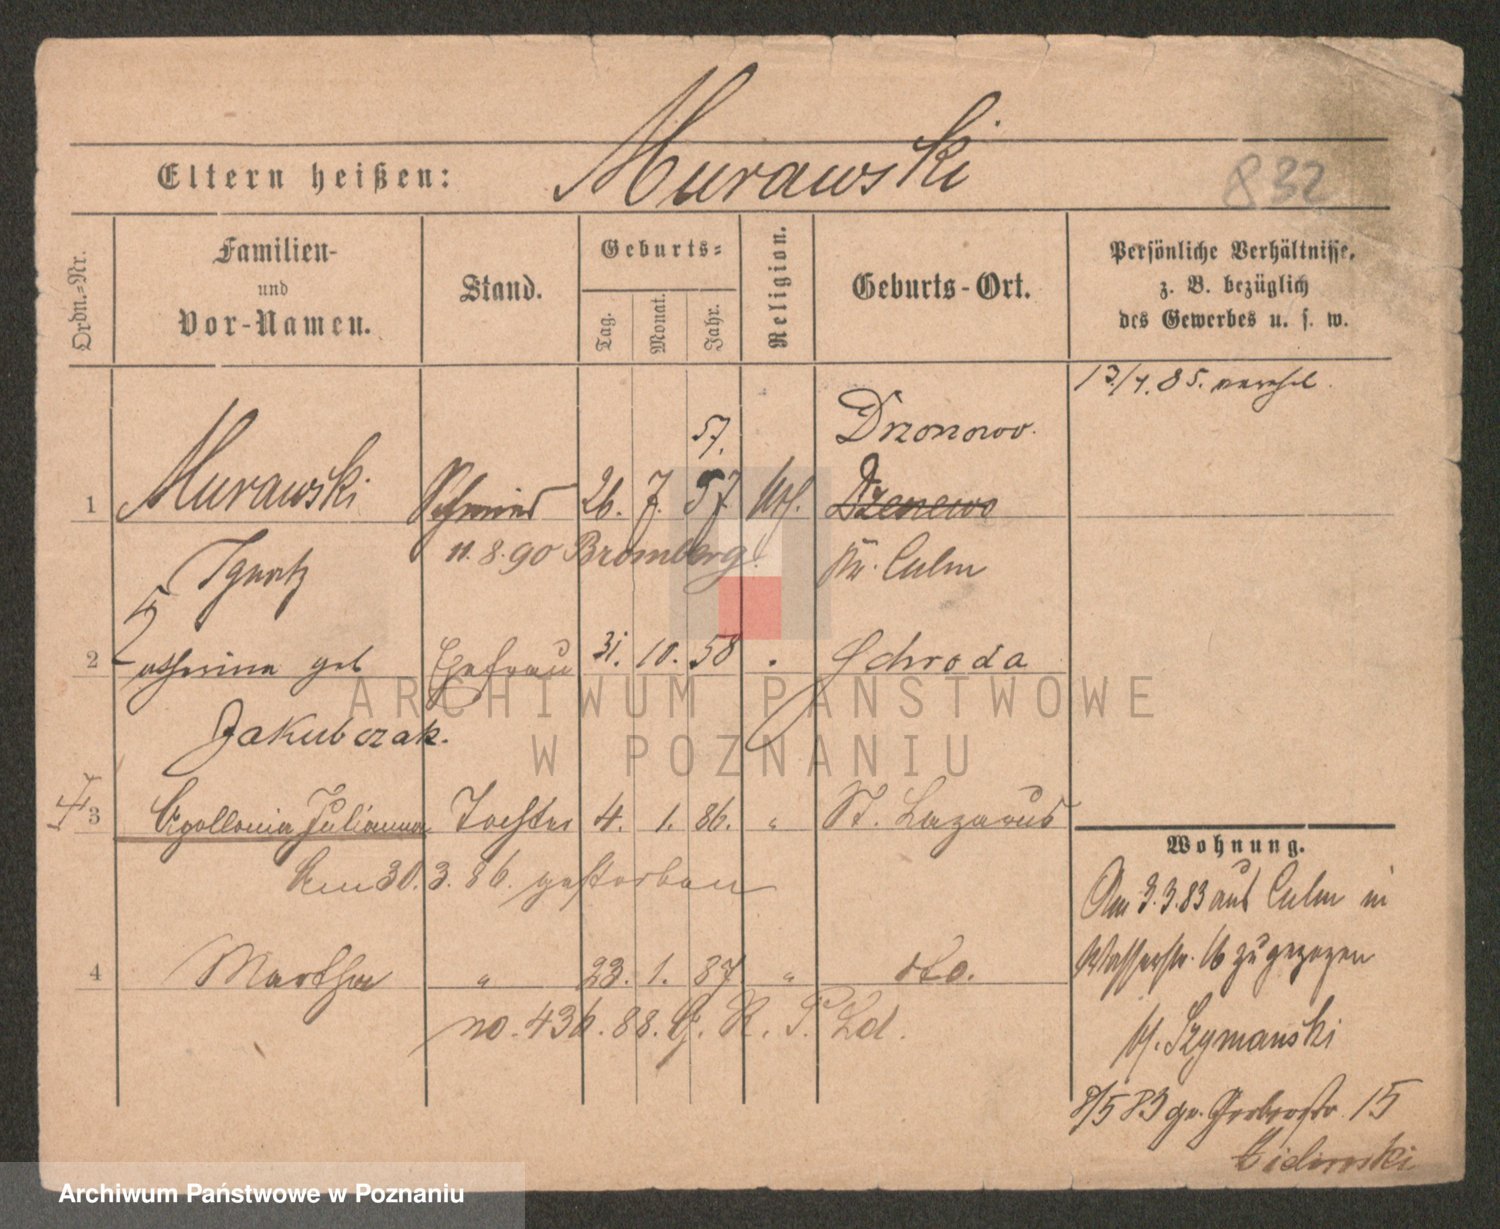 Murawski
Eltern heißen:
832
Ordn.-Nr.
Familien-
und
Vor-Namen.
Stand.
Geburts-
Tag.
Monat.
Jahr.
Religion.
Geburts-Ort.
Persönliche Verhältnisse,
z. B. bezüglich
des Gewerbes u. s. w.
57.
Drzonowo.
1 Murawski Schmied 26. 7. 57. kath. Dzenewo
Ignatz 11.8.90 Bromberg. Kr. Culm
2 Catharina geb Ehefrau 31. 10. 58 Schroda
Jakubczak.
3 Apollonia Julianna Tochter 4. 1. 86. " St. Lazarus
Am 30.3.86. gestorben
4 Martha " 23. 1. 87 " dto.
no. 436.88. G. R. P. Ld.
Wohnung.
Am 3.3.83 aus Culm in
Wasserstr. 16 zugezogen
b/. Szymanski
8/5 83 gz. Grabenstr. 15
ARCHIWUM PAŃSTWOWE
W POZNANIU
Archiwum Państwowe w Poznaniu